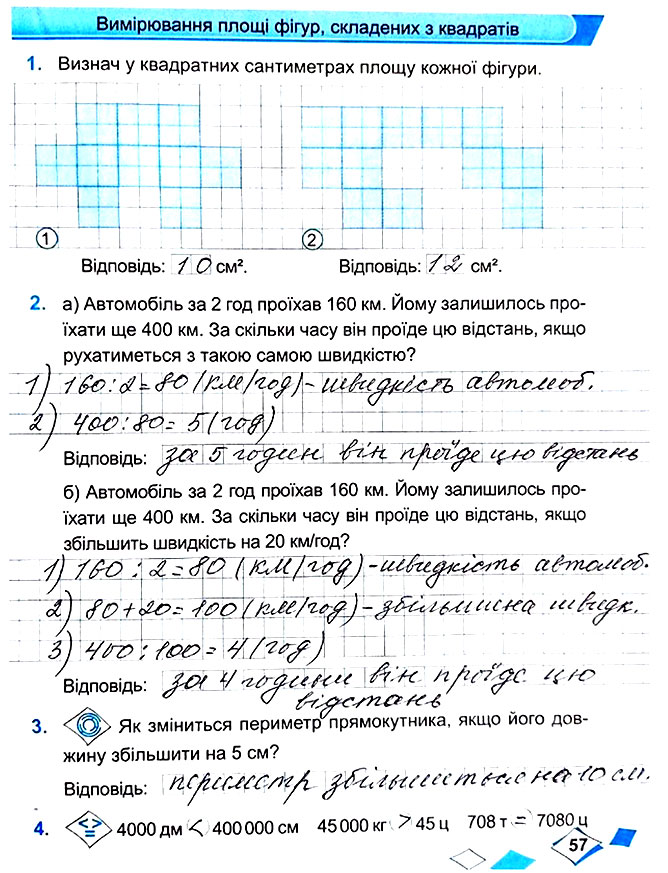 Вимірювання площі фігур, складених з квадратів
1. Визнач у квадратних сантиметрах площу кожної фігури.
1 2
Відповідь: 10 см². Відповідь: 12 см².
2. а) Автомобіль за 2 год проїхав 160 км. Йому залишилось про-
їхати ще 400 км. За скільки часу він проїде цю відстань, якщо
рухатиметься з такою самою швидкістю?
1) 160:2=80 (км/год)-швидкість автомоб.
2) 400:80=5(год)
Відповідь: за 5 годин він проїде цю відстань
б) Автомобіль за 2 год проїхав 160 км. Йому залишилось про-
їхати ще 400 км. За скільки часу він проїде цю відстань, якщо
збільшить швидкість на 20 км/год?
1) 160:2=80 (км/год)-швидкість автомоб.
2) 80+20=100(км/год)-збільшена швидк.
3) 400:100=4(год)
Відповідь: за 4 години він проїде цю
відстань
3. Як зміниться периметр прямокутника, якщо його дов-
жину збільшити на 5 см?
Відповідь: периметр збільшиться на 10 см.
4. <=> 4000 дм < 400 000 см 45 000 кг > 45 ц 708 т = 7080 ц
57